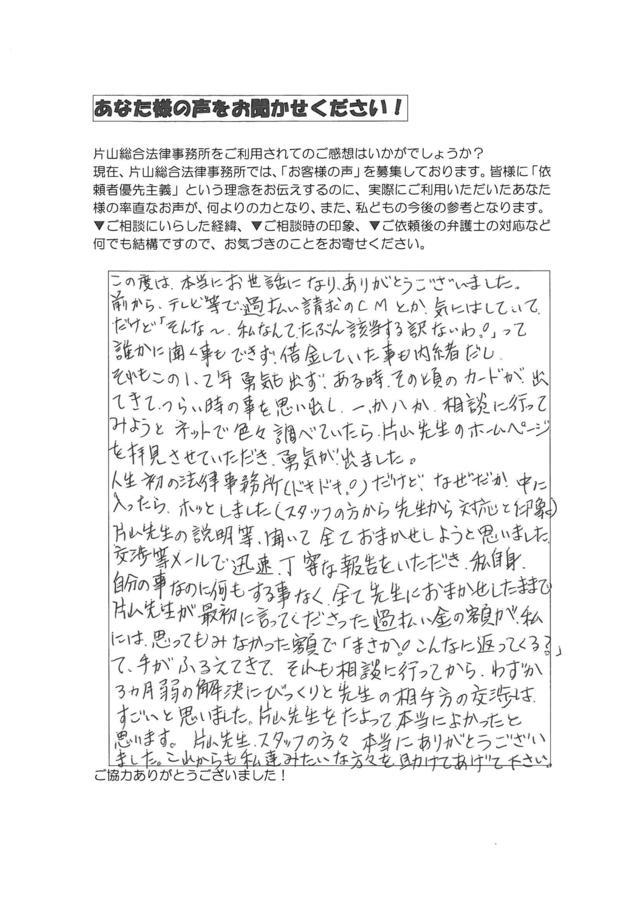 あなた様の声をお聞かせください!
片山総合法律事務所をご利用されてのご感想はいかがでしょうか?
現在、片山総合法律事務所では、「お客様の声」を募集しております。皆様に「依
頼者優先主義」という理念をお伝えするのに、実際にご利用いただいたあなた
様の率直なお声が、何よりの力となり、また、私どもの今後の参考となります。
▼ご相談にいらした経緯、▼ご相談時の印象、▼ご依頼後の弁護士の対応など
何でも結構ですので、お気づきのことをお寄せください。
この度は、本当にお世話になり、ありがとうございました。
前から、テレビ等で、過払い請求のCMとか、気にはしていて、
だけど「そんな~、私なんて、たぶん該当する訳ないわ。」って
誰かに聞く事もできず、借金していた事も内緒だし、
それもこの1、2年勇気も出ず、ある時、その頃のカードが、出
てきて、つらい時の事を思い出し、一か八か、相談に行って
みようと ネットで色々調べていたら、片山先生のホームページ
を拝見させていただき、勇気が出ました。
人生初の法律事務所(ドキドキ。)だけど、なぜだか、中に
入ったら、ホッとしました(スタッフの方から先生から対応と印象)
片山先生の説明等、聞いて全ておまかせしようと思いました。
交渉等メールで迅速、丁寧な報告をいただき、私自身、
自分の事なのに何もする事なく、全て先生におまかせしたままで
片山先生が最初に言ってくださった過払い金の額が、私
には、思ってもみなかった額で「まさか。こんなに返ってくる?」
て、手がふるえてきて、それも相談に行ってから、わずか
3ヵ月弱の解決にびっくりと先生の相手方の交渉は、
すごいと思いました。片山先生をたよって本当によかったと
思います。片山先生、スタッフの方々、本当にありがとうござい
ました。これからも私達みたいな方々を助けてあげて下さい。
ご協力ありがとうございました!